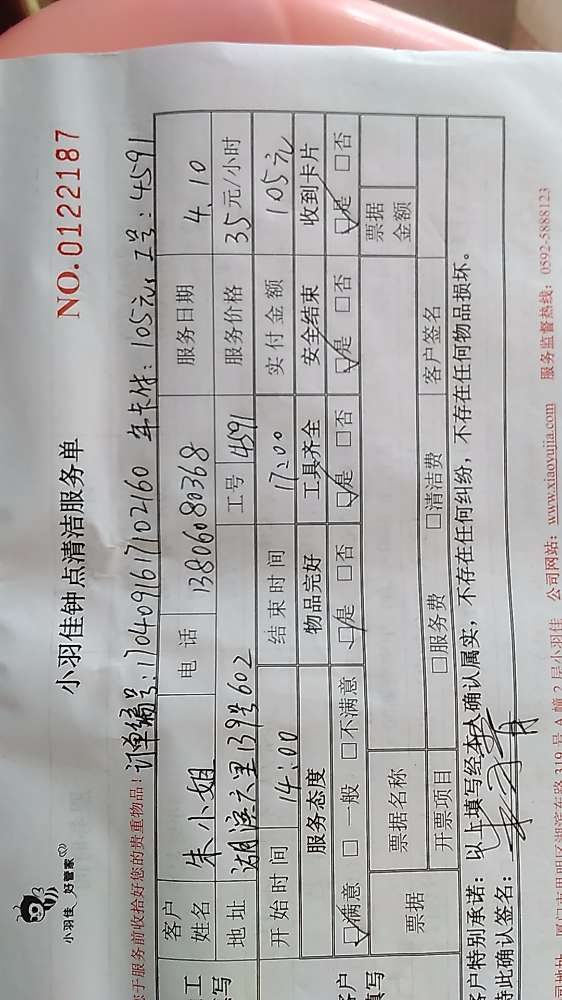 小羽佳 好管家
小羽佳钟点清洁服务单
NO.0122187
您于服务前收拾好您的贵重物品! 订单编号:1704091617102160 年卡付:105元; 工号:4591
客户姓名 朱小姐 电话 13806080368 服务日期 4.10
地址 湖滨六里139号602 工号 4591 服务价格 35元/小时
开始时间 14:00 结束时间 17:00 实付金额 105元
服务态度 物品完好 工具齐全 安全结束 收到卡片
☑满意 □一般 □不满意 ☑是 □否 ☑是 □否 ☑是 □否 ☑是 □否
票据 票据名称 票据金额
开票项目 □服务费 □清洁费 客户签名
客户特别承诺:以上填写经本人确认属实,不存在任何纠纷,不存在任何物品损坏。
特此确认签名:
公司网站:www.xiaoyujia.com 服务监督热线:0592-5888123